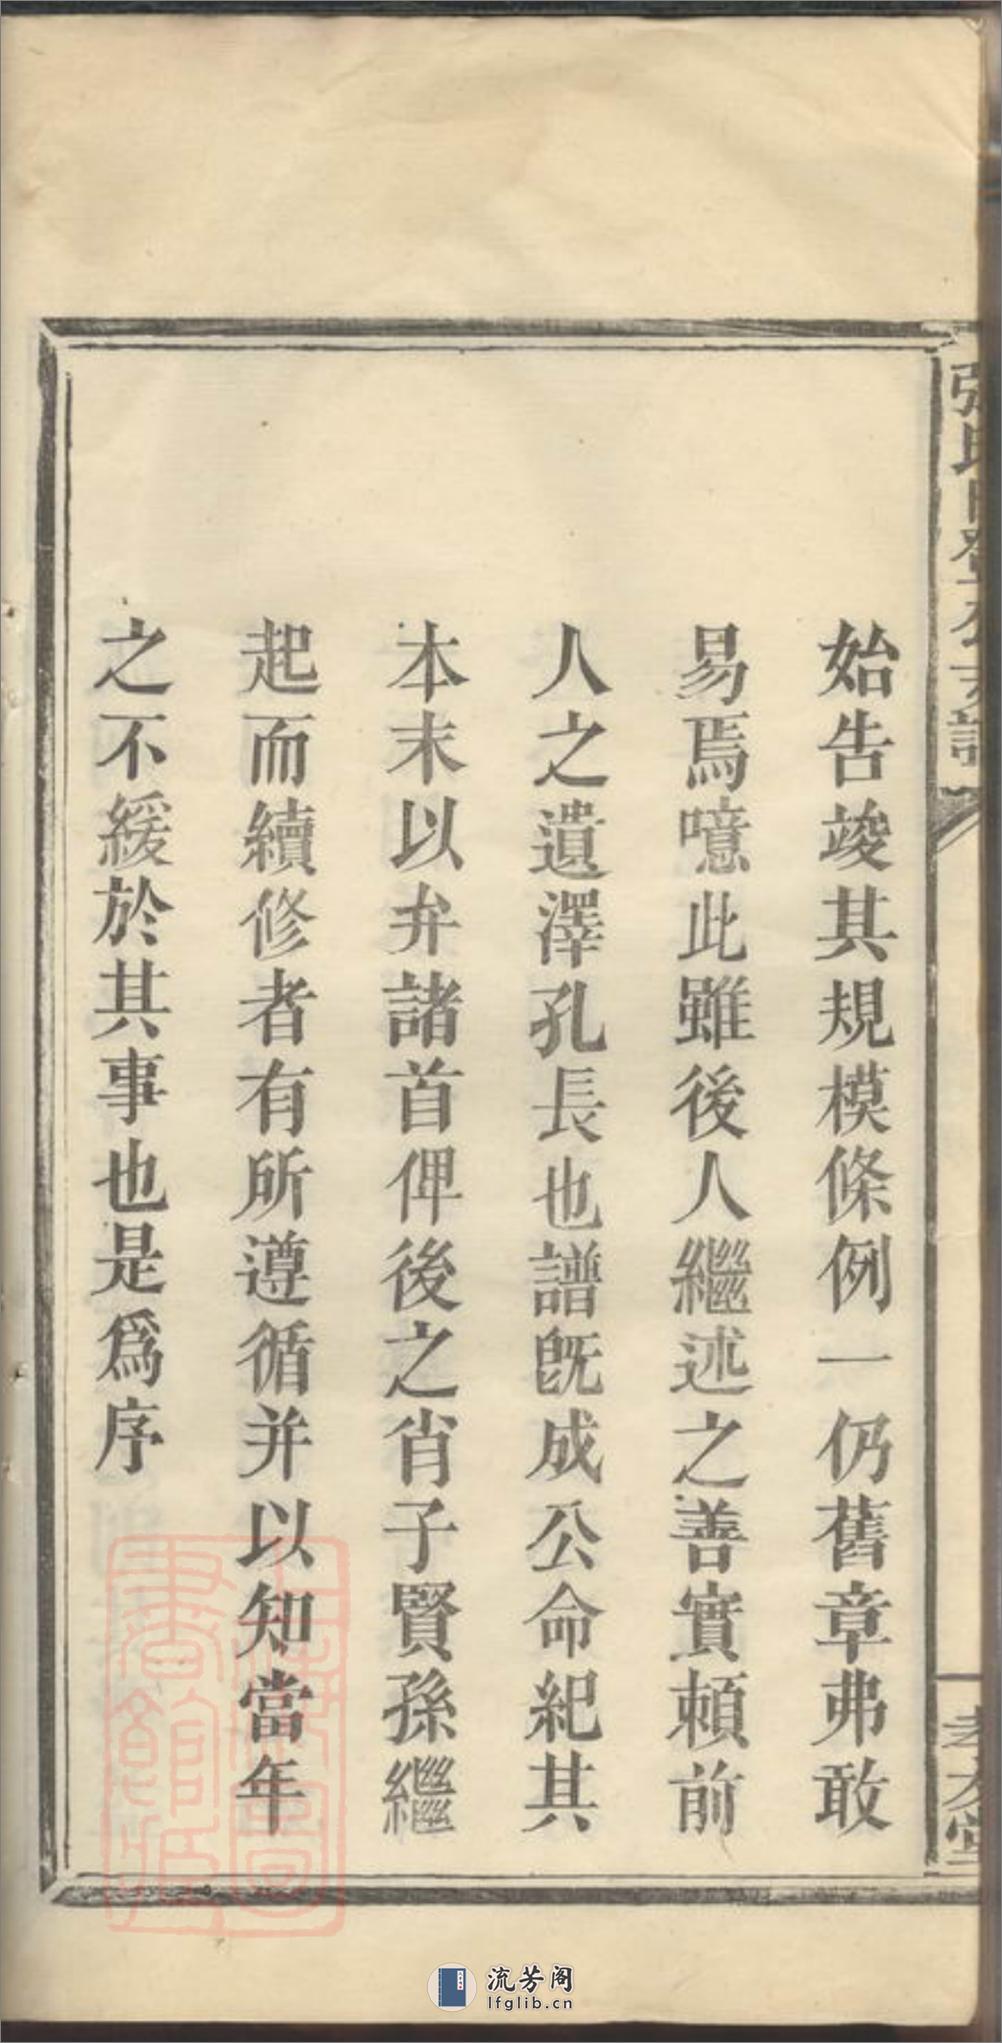 始告竣其規模條例一仍舊章弗敢
易焉噫此雖後人繼述之善實頼前
人之遺澤孔長也譜旣成公命紀其
本末以弁諸首俾後之肖子賢孫繼
起而續修者有所遵循并以知當年
之不緩於其事也是爲序
流芳阁
lfglib.cn